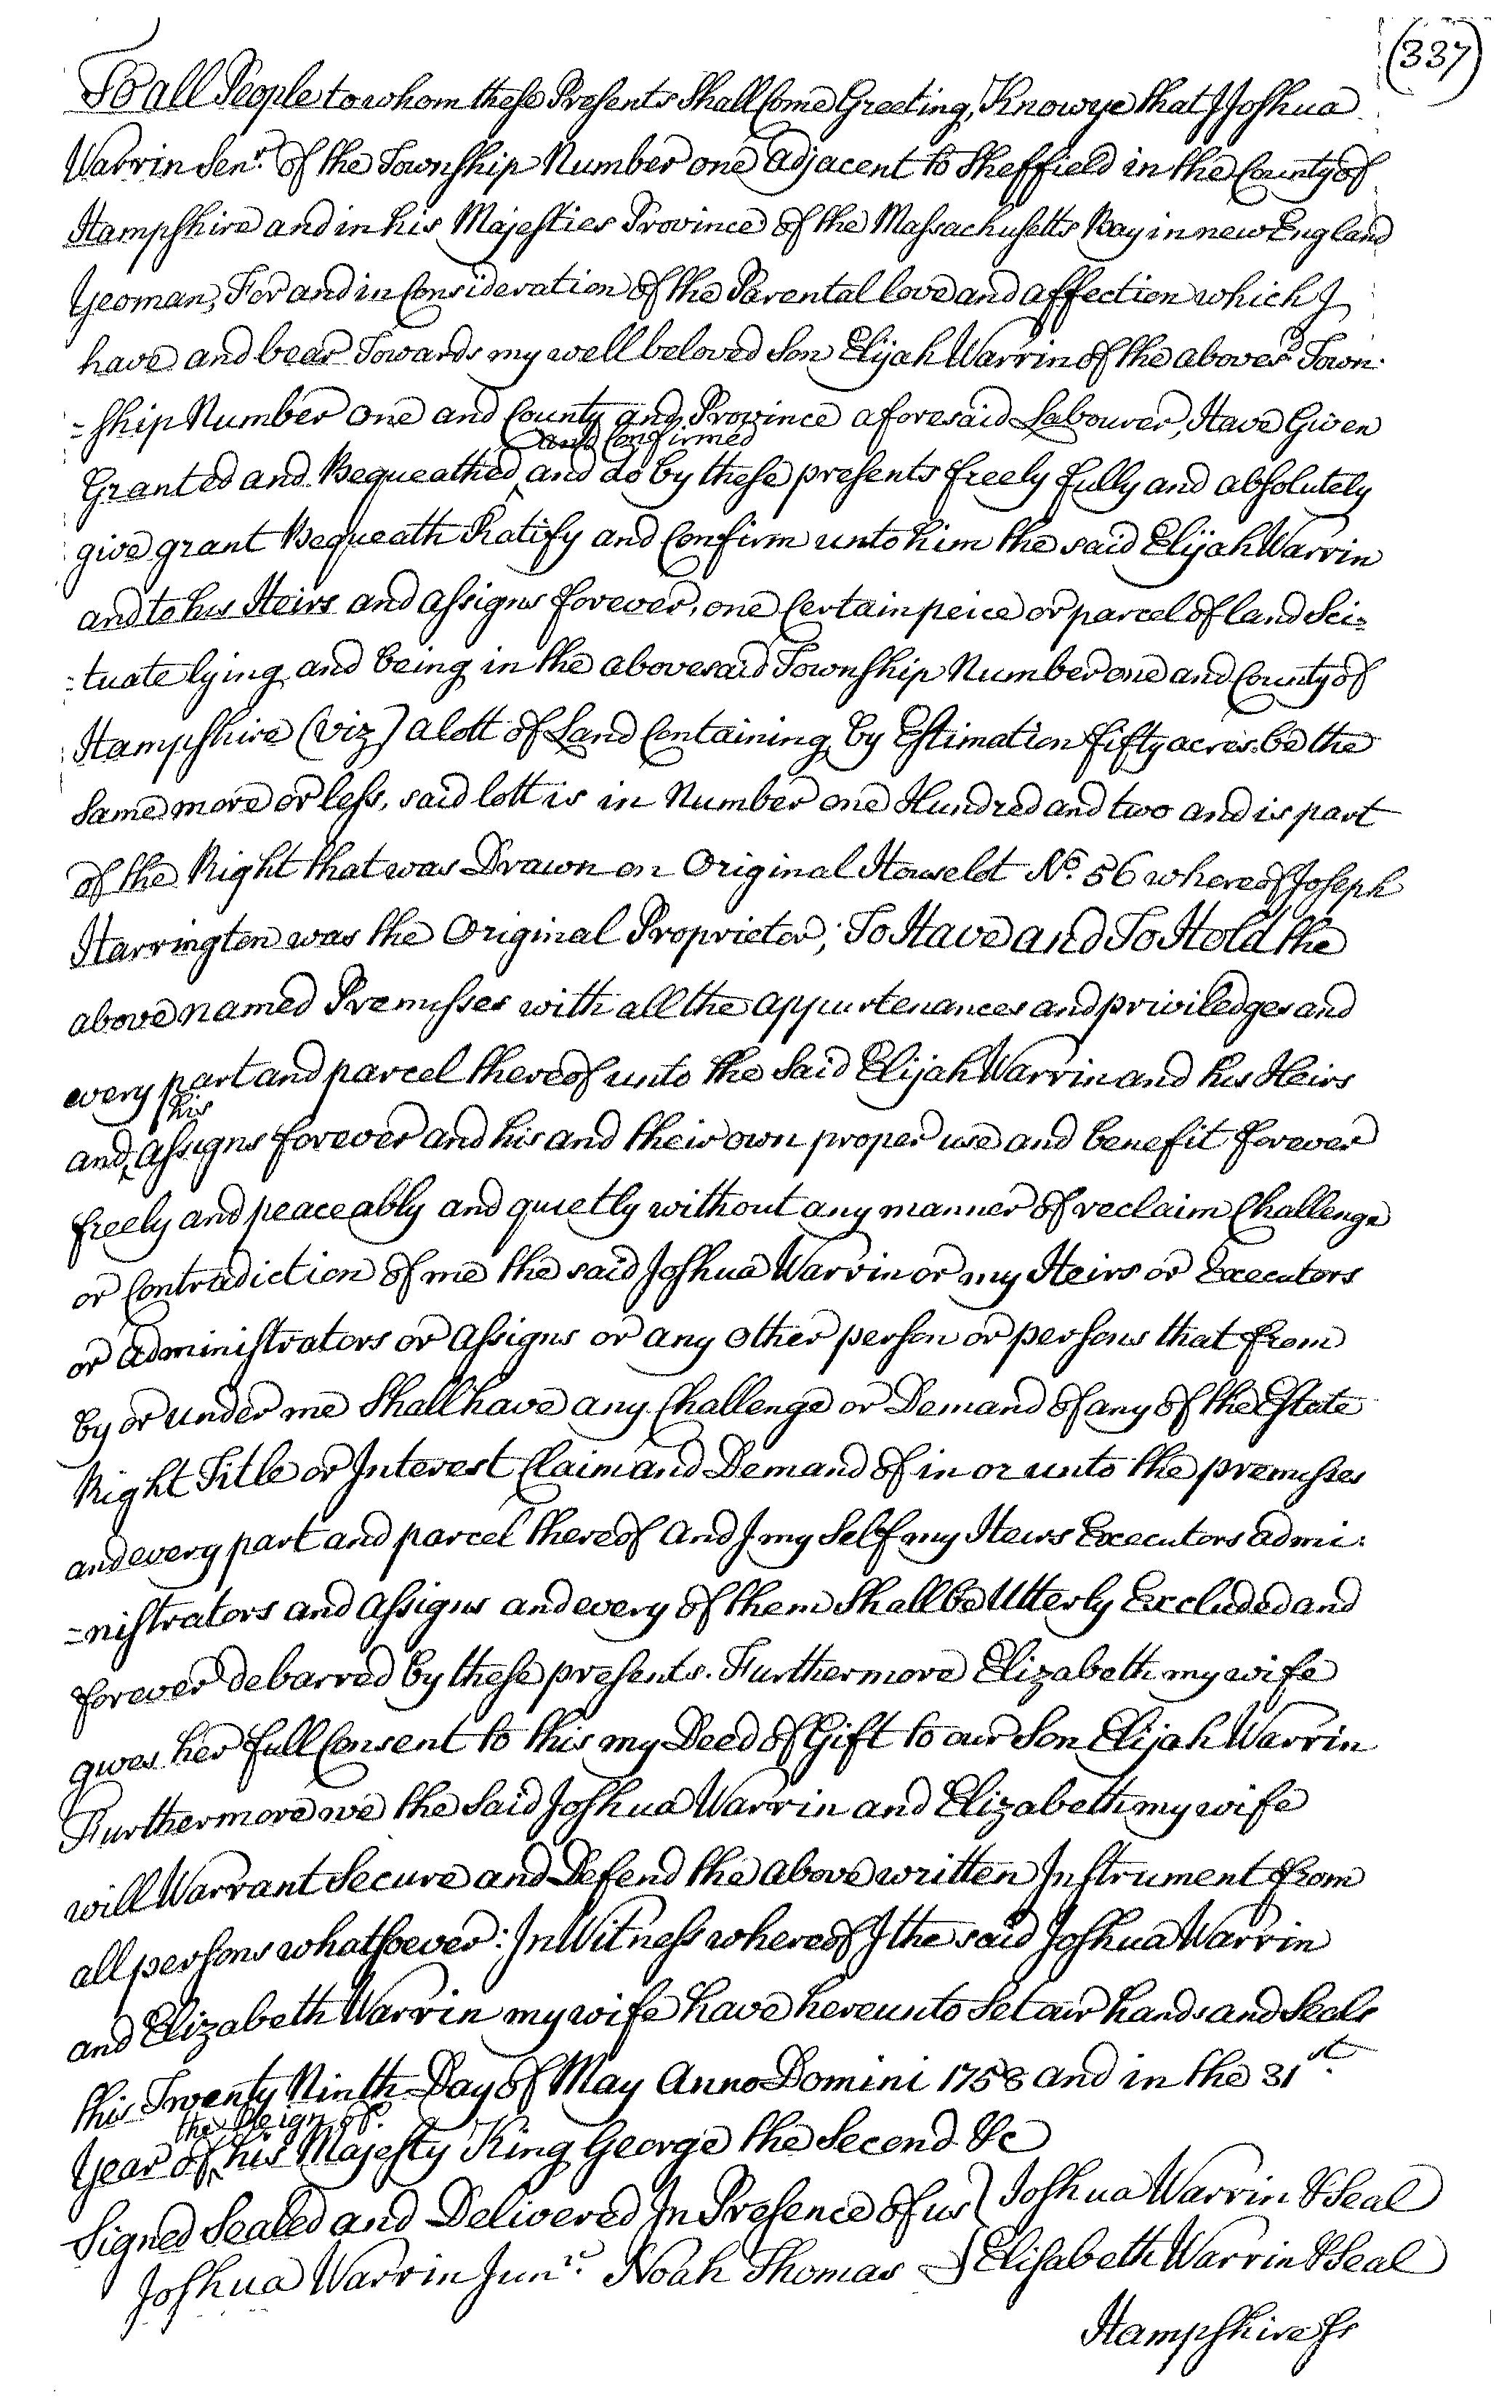 (337)
To all People to whom these Presents Shall Come Greeting, Know ye that I Joshua
Warrin Senr. of the Township Number one adjacent to Sheffield in the County of
Hampshire and in his Majesties Province of the Massachusetts Bay in new England
Yeoman, For and in Consideration of the Parental love and affection which I
have and bear Towards my well beloved Son Elijah Warrin of the abovesd Town-
=ship Number one and County and Province aforesaid Labourer, Have Given
and Confirmed
Granted and Bequeathed ^ and do by these presents freely fully and absolutely
give grant Bequeath Ratify and Confirm unto him the said Elijah Warrin
and to his Heirs and assigns forever, one Certain peice or parcel of land Sci=
=tuate lying and being in the abovesaid Township Number one and County of
Hampshire (viz) a lott of Land Containing by Estimation fifty acres be the
Same more or less, said lott is in Number one Hundred and two and is part
of the Right that was Drawn on Original Houselot No. 56 whereof Joseph
Harrington was the Original Proprietor; To Have and To Hold the
above named Premisses with all the appurtenances and priviledges and
every part and parcel thereof unto the Said Elijah Warrin and his Heirs
his
and ^ assigns forever and his and their own proper use and benefit forever
freely and peaceably and quietly without any manner of reclaim Challenge
or Contradiction of me the said Joshua Warrin or my Heirs or Executors
or administrators or assigns or any other person or persons that from
by or under me Shall have any Challenge or Demand of any of the Estate
Right Title or Interest Claim and Demand of in or unto the premisses
and every part and parcel thereof and I my Self my Heirs Executors admi-
=nistrators and assigns and every of them Shall be Utterly Excluded and
forever debarred by these presents. Furthermore Elizabeth my wife
gives her full Consent to this my Deed of Gift to our Son Elijah Warrin
Furthermore we the Said Joshua Warrin and Elizabeth my wife
will Warrant Secure and Defend the above written Instrument from
all persons whatsoever: In Witness whereof I the said Joshua Warrin
and Elizabeth Warrin my wife have hereunto Set our hands and Seals
this Twenty Ninth Day of May Anno Domini 1758 and in the 31st.
the Reign of
Year of ^ his Majesty King George the Second &c
Signed Sealed and Delivered In Presence of us } Joshua Warrin & Seal
Joshua Warrin Junr. Noah Thomas } Elisabeth Warrin & Seal
Hampshire ss